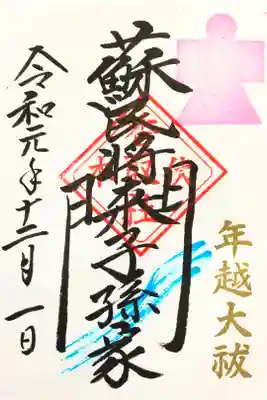 年越大祓
蘇民将来子孫家門
令和元年十二月一日